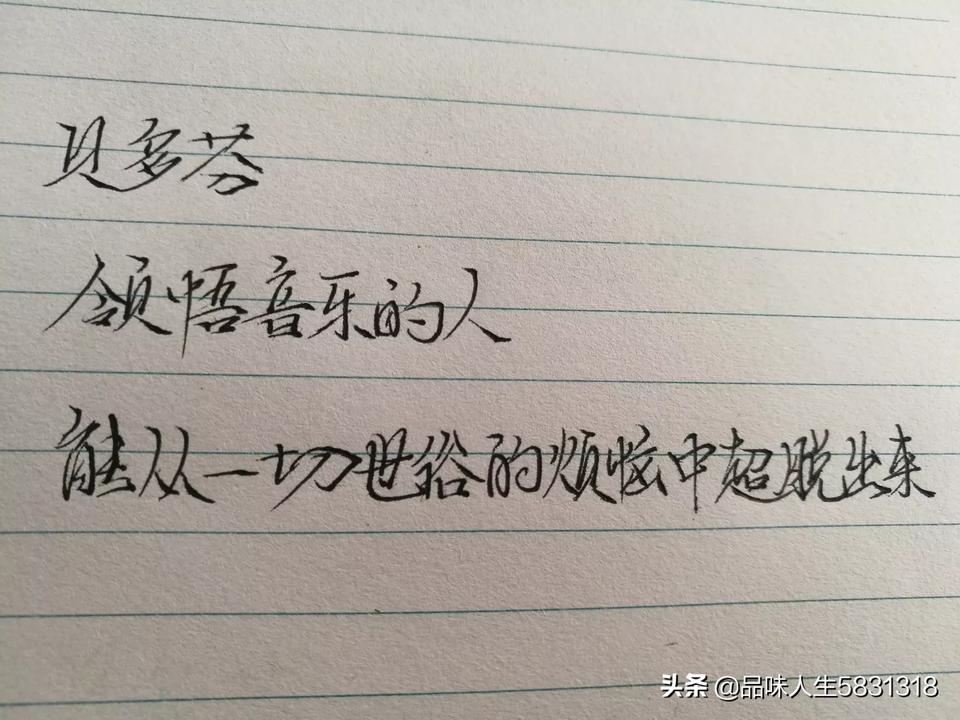 贝多芬
领悟音乐的人
能从一切世俗的烦恼中超脱出来
头条 @品味人生5831318